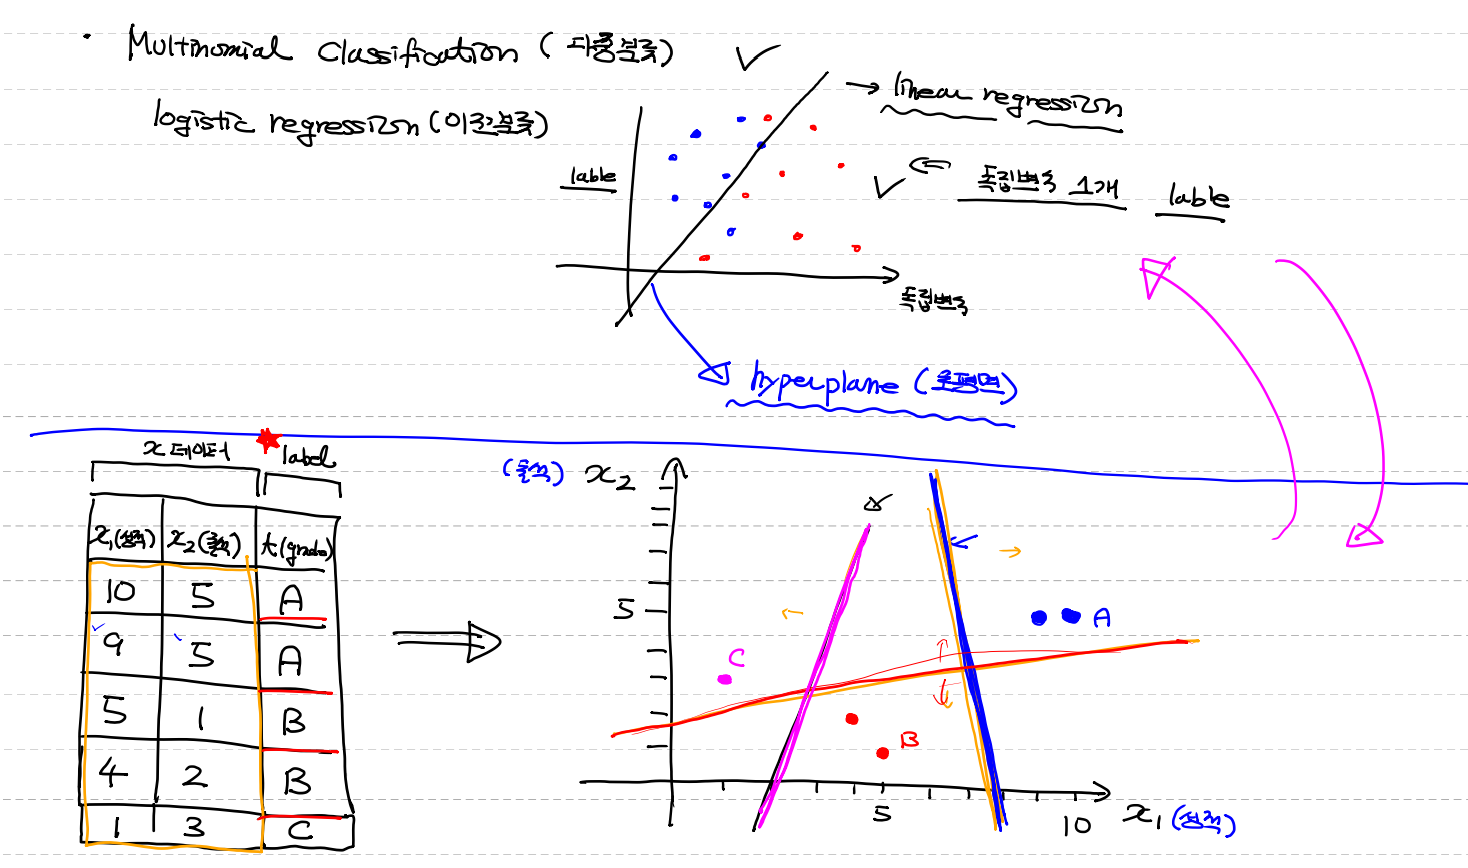 · Multinomial Classification (다중분류)
logistic regression (이진분류)
→ linear regression
lable
독립변수 1개 lable
독립변수
hyperplane (초평면)
x 데이터 label
x₁(성적) x₂(출석) t(grade)
10 5 A
9 5 A
5 1 B
4 2 B
1 3 C
(출석) x₂
5
C
A
B
5 10 x₁(성적)